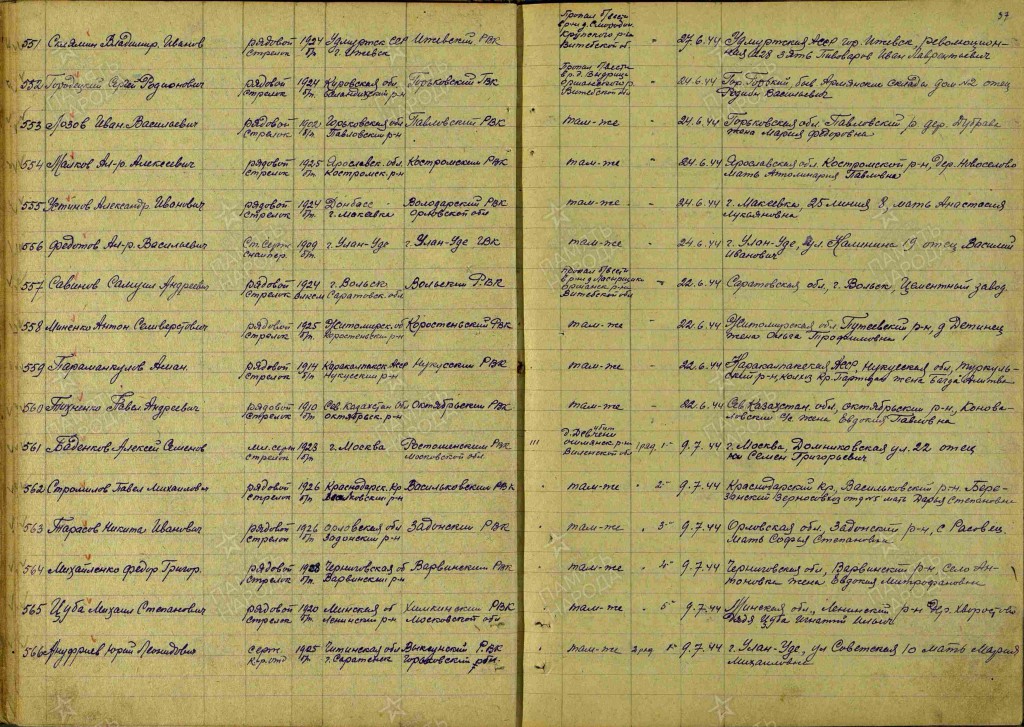 37
551 Скалянин Владимир Иванов рядовой 1924 Удмуртск ССР Ижевский РВК Пропал без вести в р-н д. Крупского р-на Витебской об " 27.6.44 Удмуртская АССР гор. Ижевск, революцион-
стрелок б/п г. Ижевск ная 128 зять Пивоваров Иван Лаврентьевич
552 Городецкий Сергей Родионович рядовой 1924 Кировская обл. Горьковский ГВК Пропал без вести в р. д. Витебской об " 24.6.44 Гор. Горький, быв. Армянские склады дом №2 отец
стрелок б/п р-н Родион Васильевич
553 Лозов Иван Васильевич рядовой Горьковская об. Павловский РВК там-же " 24.6.44 Горьковская обл. Павловский р. дер. Дубрава
стрелок б/п Павловский р-н жена Мария Федоровна
554 Малков Ал-р. Алексеевич рядовой 1925 Ярославск. обл. Костромский РВК там-же " 24.6.44 Ярославская обл. Костромской р-н, дер. Новоселово
стрелок б/п Костромск. р-н мать Апполинария Павловна
555 Устинов Александр Иванович рядовой 1924 Донбасс - Володарский РВК там-же " 24.6.44 г. Макеевка, 25 линия 8 мать Анастасия
стрелок б/п г. Макеевка Орловской обл Лукьяновна
556 Федотов Ал-р. Васильевич Ст. Серж 1909 г. Улан-Уде г. Улан-Уде ГВК там-же " 24.6.44 г. Улан-Уде, ул. Калинина 19 отец Василий
снайпер. б/п Иванович
557 Савинов Самуил Андреевич рядовой 1924 г. Вольск Вольский РВК Пропал без вести в р-н д. Оршанск. р-на Витебской обл " 22.6.44 Саратовская обл., г. Вольск, Цементный завод
стрелок Саратовск. обл.
558 Миненко Антон Селиверстович рядовой 1925 Житомирск. об Коростеньский РВК там-же " 22.6.44 Житомирская обл. р-н, д Детинец
стрелок б/п Коростеньский р-н жена Ольга Трофимовна
559 Тараманкулов Асман. рядовой 1914 Каракалпакск АССР Нукусский РВК там-же " 22.6.44 Каракалпакская АССР, Нукусская обл,
стрелок б/п Нукусский р-н р-н, колхоз Кр. Партизан жена
560 Тихненко Павел Андреевич рядовой 1910 Сев. Казахстан. обл Октябрьский РВК там-же " 22.6.44 Сев. Казахстан. обл, Октябрьский р-н, Конова-
стрелок б/п Октябрьск. р-н ловский с/с жена Евдокия Павловна
561 Баденков Алексей Семенов мл. серж 1923 г. Москва Ростокинский РВК д. Девчени Ошмянск. р-на Виленской обл 1 ряд 1- 9.7.44 г. Москва, Домниковская ул. 22 отец
стрелок б/п Московской обл. Семен Григорьевич
562 Стромилов Павел Михайлович рядовой 1926 Краснодарск. кр. Васильковский РВК там-же " 2- 9.7.44 Краснодарский кр, Васильковский р-н Бере-
стрелок б/п р-н занский Верносовхоз мать Дарья Степановна
563 Тарасов Никита Иванович рядовой 1926 Орловская обл Задонский РВК там-же " 3- 9.7.44 Орловская обл. Задонский р-н, с Расовец
стрелок б/п Задонский р-н мать Софья Степановн
564 Михайленко Федор Григор. рядовой Черниговская об Варвинский РВК там-же " 4- 9.7.44 Черниговская обл., Варвинский р-н село Ан-
стрелок б/п Варвинский р-н тоновка жена Евдокия Митрофановна
565 Цуба Михаил Степанович рядовой 1920 Минская об Химкинский РВК там-же " 5- 9.7.44 Минская обл., Ленинский р-н дер. Хворостов
стрелок б/п Ленинский р-н Московской обл дядя Цуба Игнатий Ильич
566 Ануфриев Юрий Леонидович серж. 1925 Читинская об Выксунский РВК там-же 2 ряд 1- 9.7.44 г. Улан-Уде, ул Советская 10 мать Мария
б/п Горьковский обл Михайловна